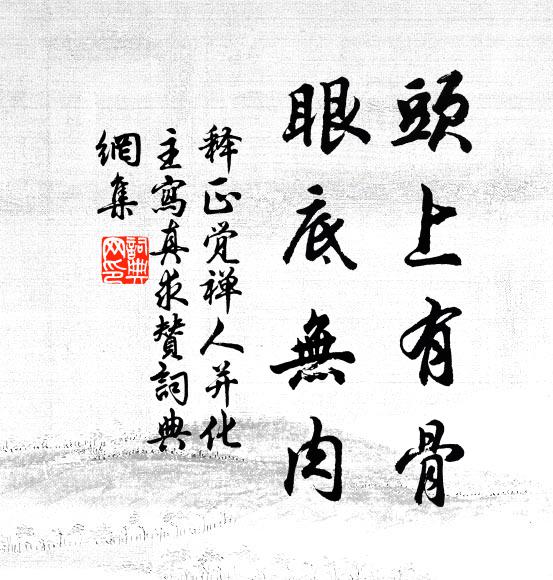 頭上有骨
眼底無肉
释正觉禅人并化
主寫真求赞詞典
網集
詞典
网印